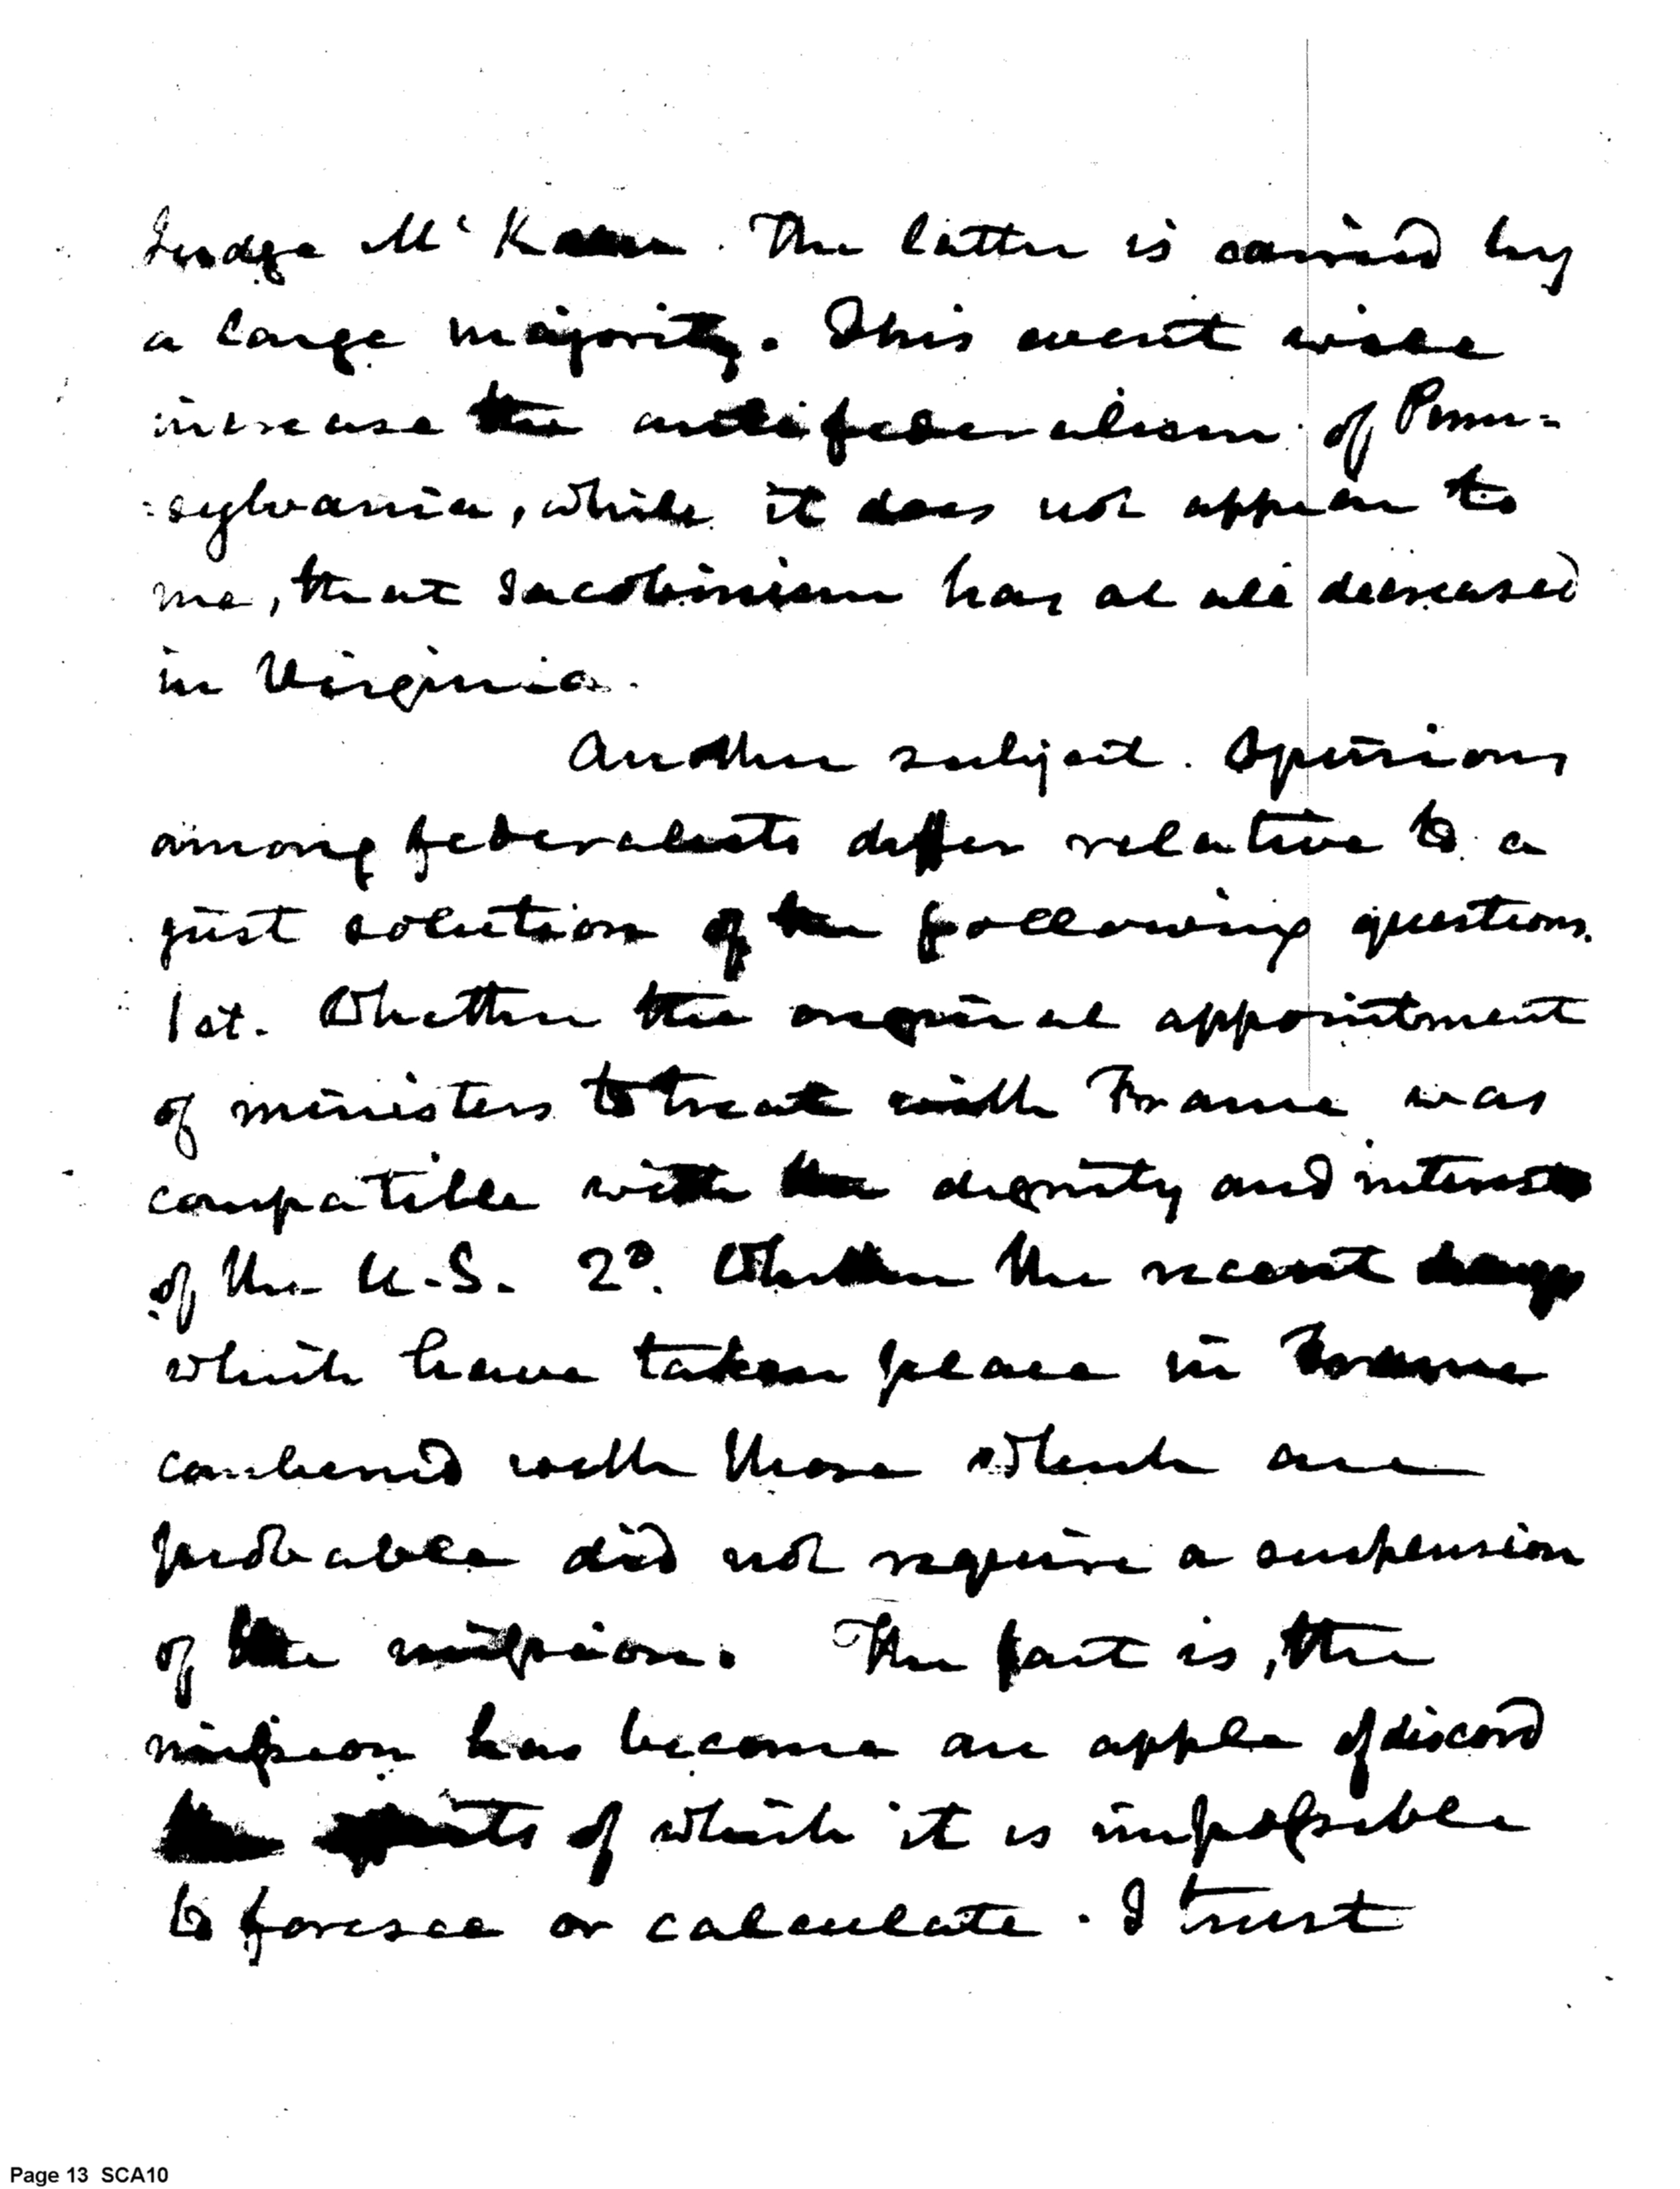 Judge McKean. The latter is carried by
a large majority. This event will
increase the antifederalism of Penn=
=sylvania, while it does not appear to
me, that Jacobinism has at all decreased
in Virginia.
Another subject. Opinions
among federalists differ relative to a
just solution of the following questions.
1st. Whether the original appointment
of ministers to treat with France was
compatible with the dignity and interests
of the U.S. 2d. Whether the recent
which have taken place in France
combined with those which are
probable did not require a suspension
of the mission. The fact is, the
mission has become an apple of discord
the effects of which it is impossible
to foresee or calculate. I trust
Page 13 SCA10